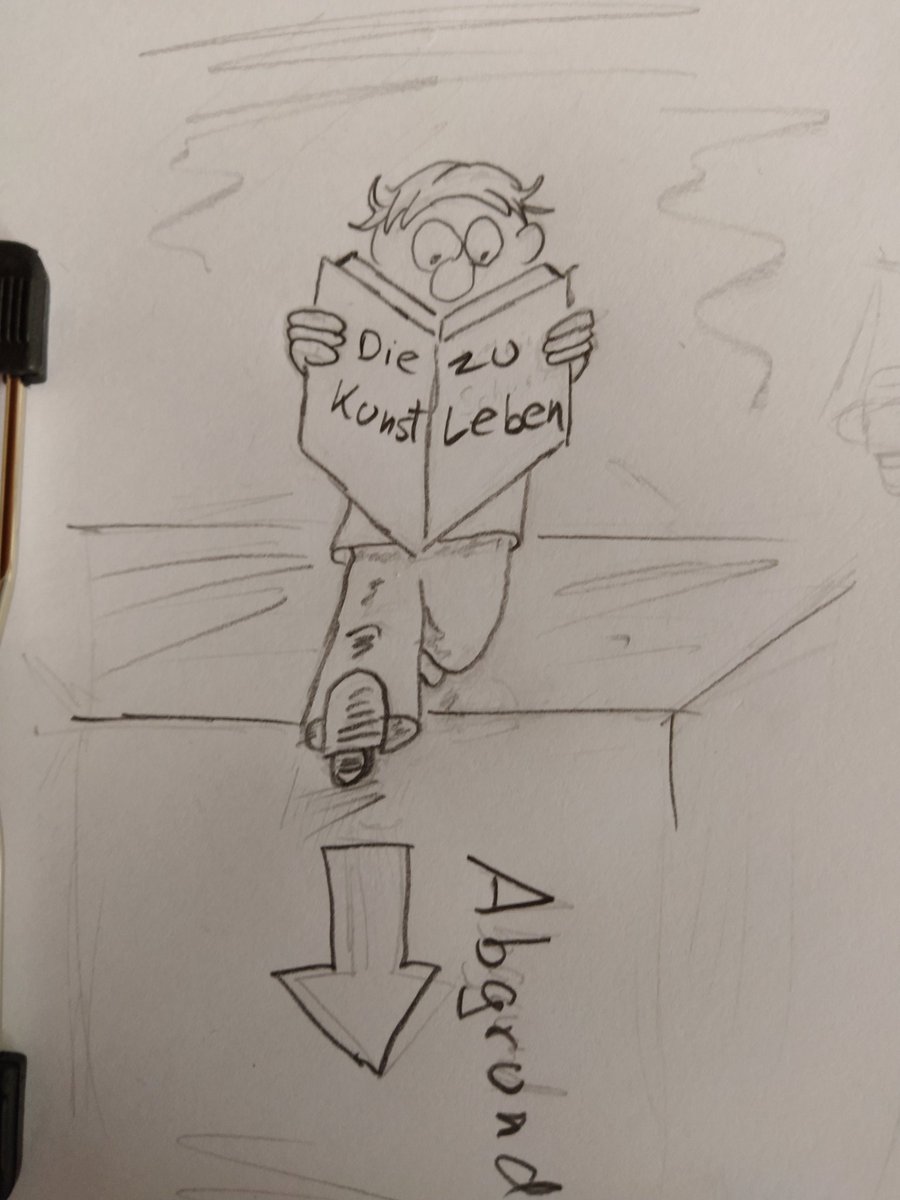 Die
Kunst
zu
Leben
Abgrund